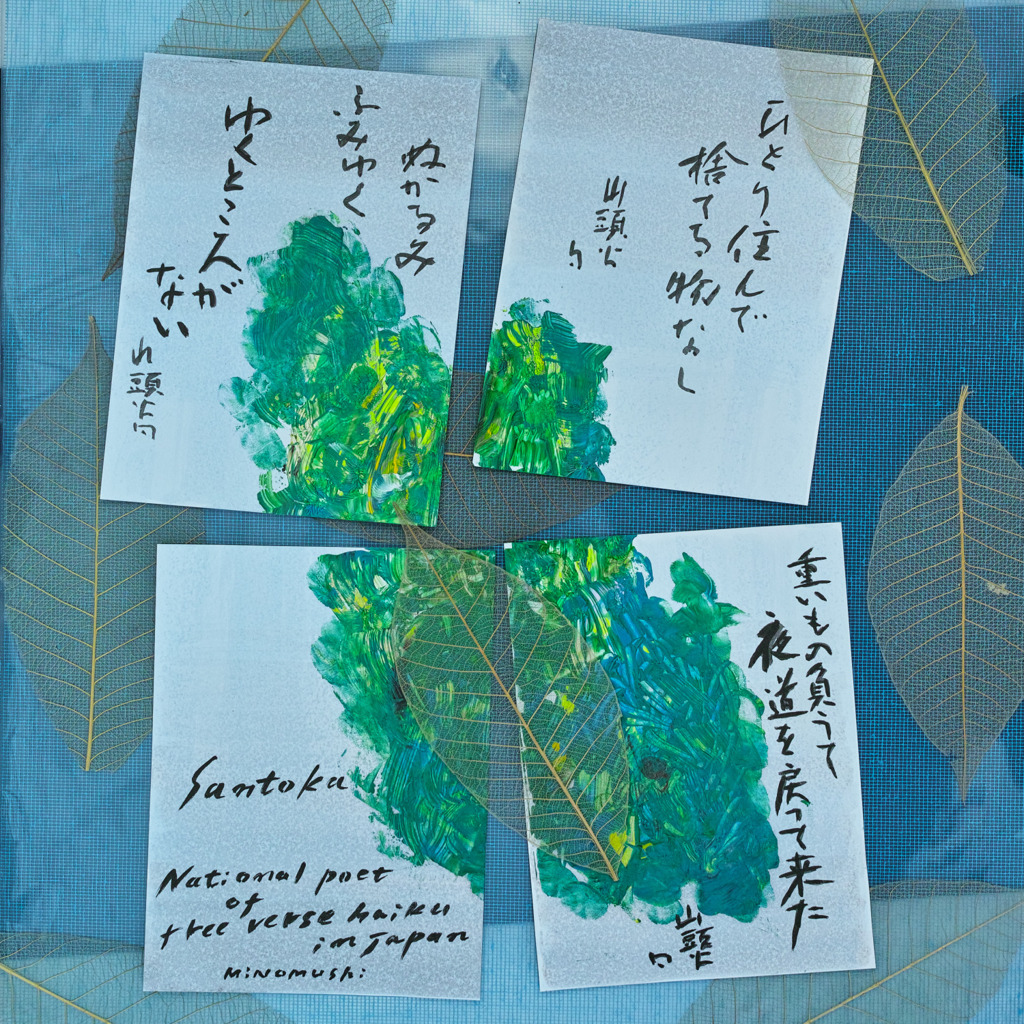 ぬかるみ
ふみゆく
ゆくところが
ない
山頭火句
ひとり住んで
捨てる物なし
山頭火
句
Santoka
National poet
of
free verse haiku
in Japan
MiNOMUSHi
重いもの負うて
夜道を戻って来た
山頭火
句